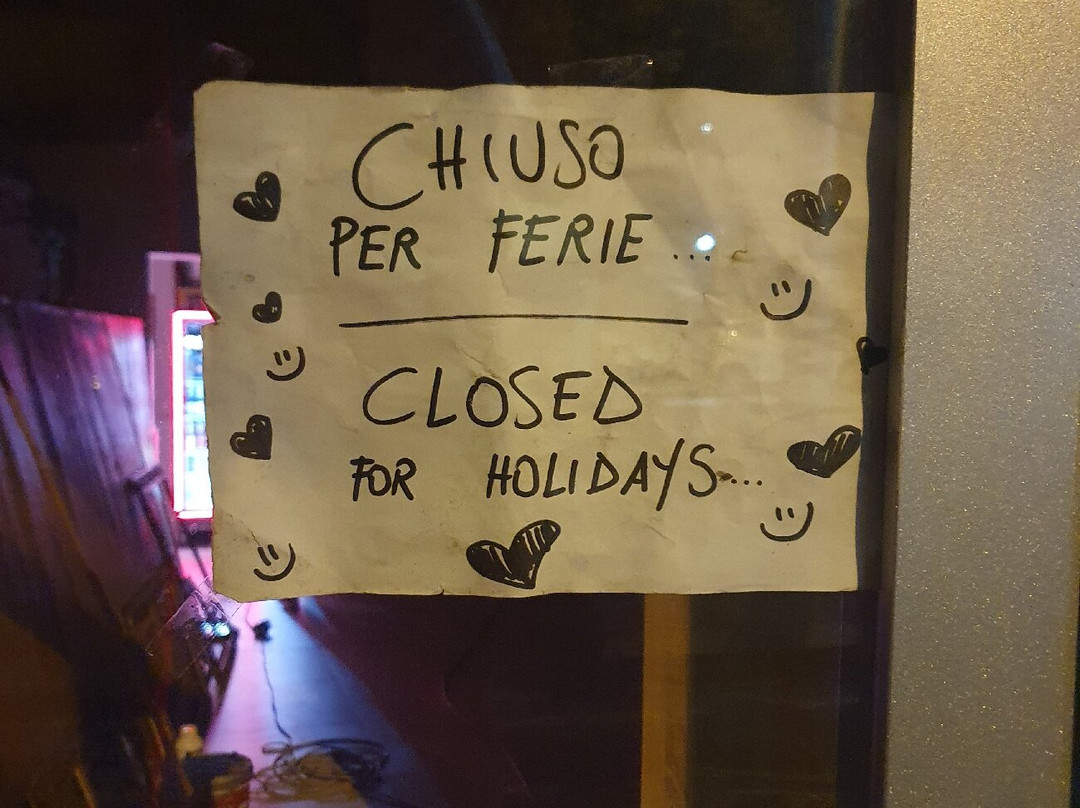 CHIUSO
PER FERIE...
CLOSED
FOR HOLIDAYS...